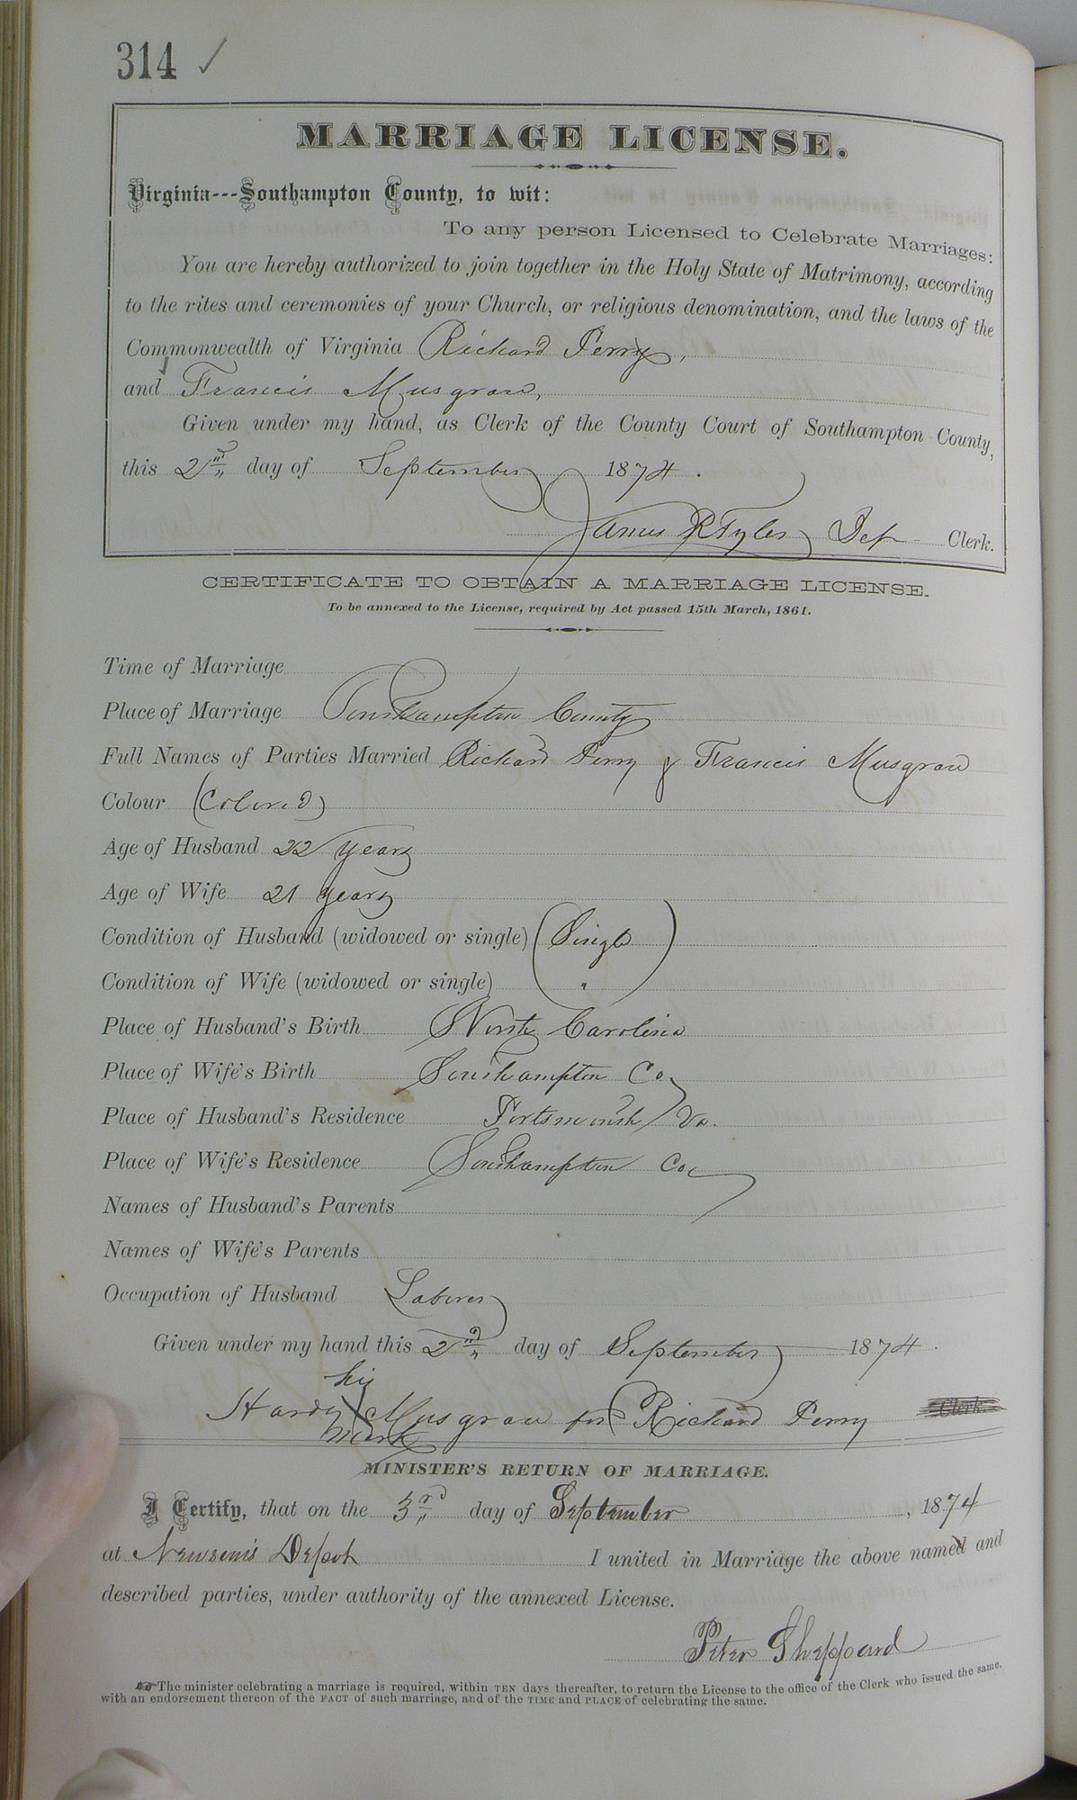 314 ✓
MARRIAGE LICENSE.
Virginia---Southampton County, to wit:
To any person Licensed to Celebrate Marriages:
You are hereby authorized to join together in the Holy State of Matrimony, according
to the rites and ceremonies of your Church, or religious denomination, and the laws of the
Commonwealth of Virginia Richard Perry,
and Francis Musgrave,
Given under my hand, as Clerk of the County Court of Southampton County,
this 2nd day of September 1874.
James R Tyler Dep Clerk.
CERTIFICATE TO OBTAIN A MARRIAGE LICENSE.
To be annexed to the License, required by Act passed 15th March, 1861.
Time of Marriage
Place of Marriage Southampton County
Full Names of Parties Married Richard Perry & Francis Musgrave
Colour (Colored)
Age of Husband 22 years
Age of Wife 21 years
Condition of Husband (widowed or single) (Single)
Condition of Wife (widowed or single) "
Place of Husband's Birth North Carolina
Place of Wife's Birth Southampton Co
Place of Husband's Residence Portsmouth Va.
Place of Wife's Residence Southampton Co
Names of Husband's Parents
Names of Wife's Parents
Occupation of Husband Laborer
Given under my hand this 2nd day of September 1874.
his
Hardy X Musgrave for Richard Perry Clerk
mark
MINISTER'S RETURN OF MARRIAGE.
I Certify, that on the 3rd day of September, 1874
at Newsom's Depot I united in Marriage the above named and
described parties, under authority of the annexed License.
Peter Sheppard
☞ The minister celebrating a marriage is required, within TEN days thereafter, to return the License to the office of the Clerk who issued the same,
with an endorsement thereon of the FACT of such marriage, and of the TIME and PLACE of celebrating the same.